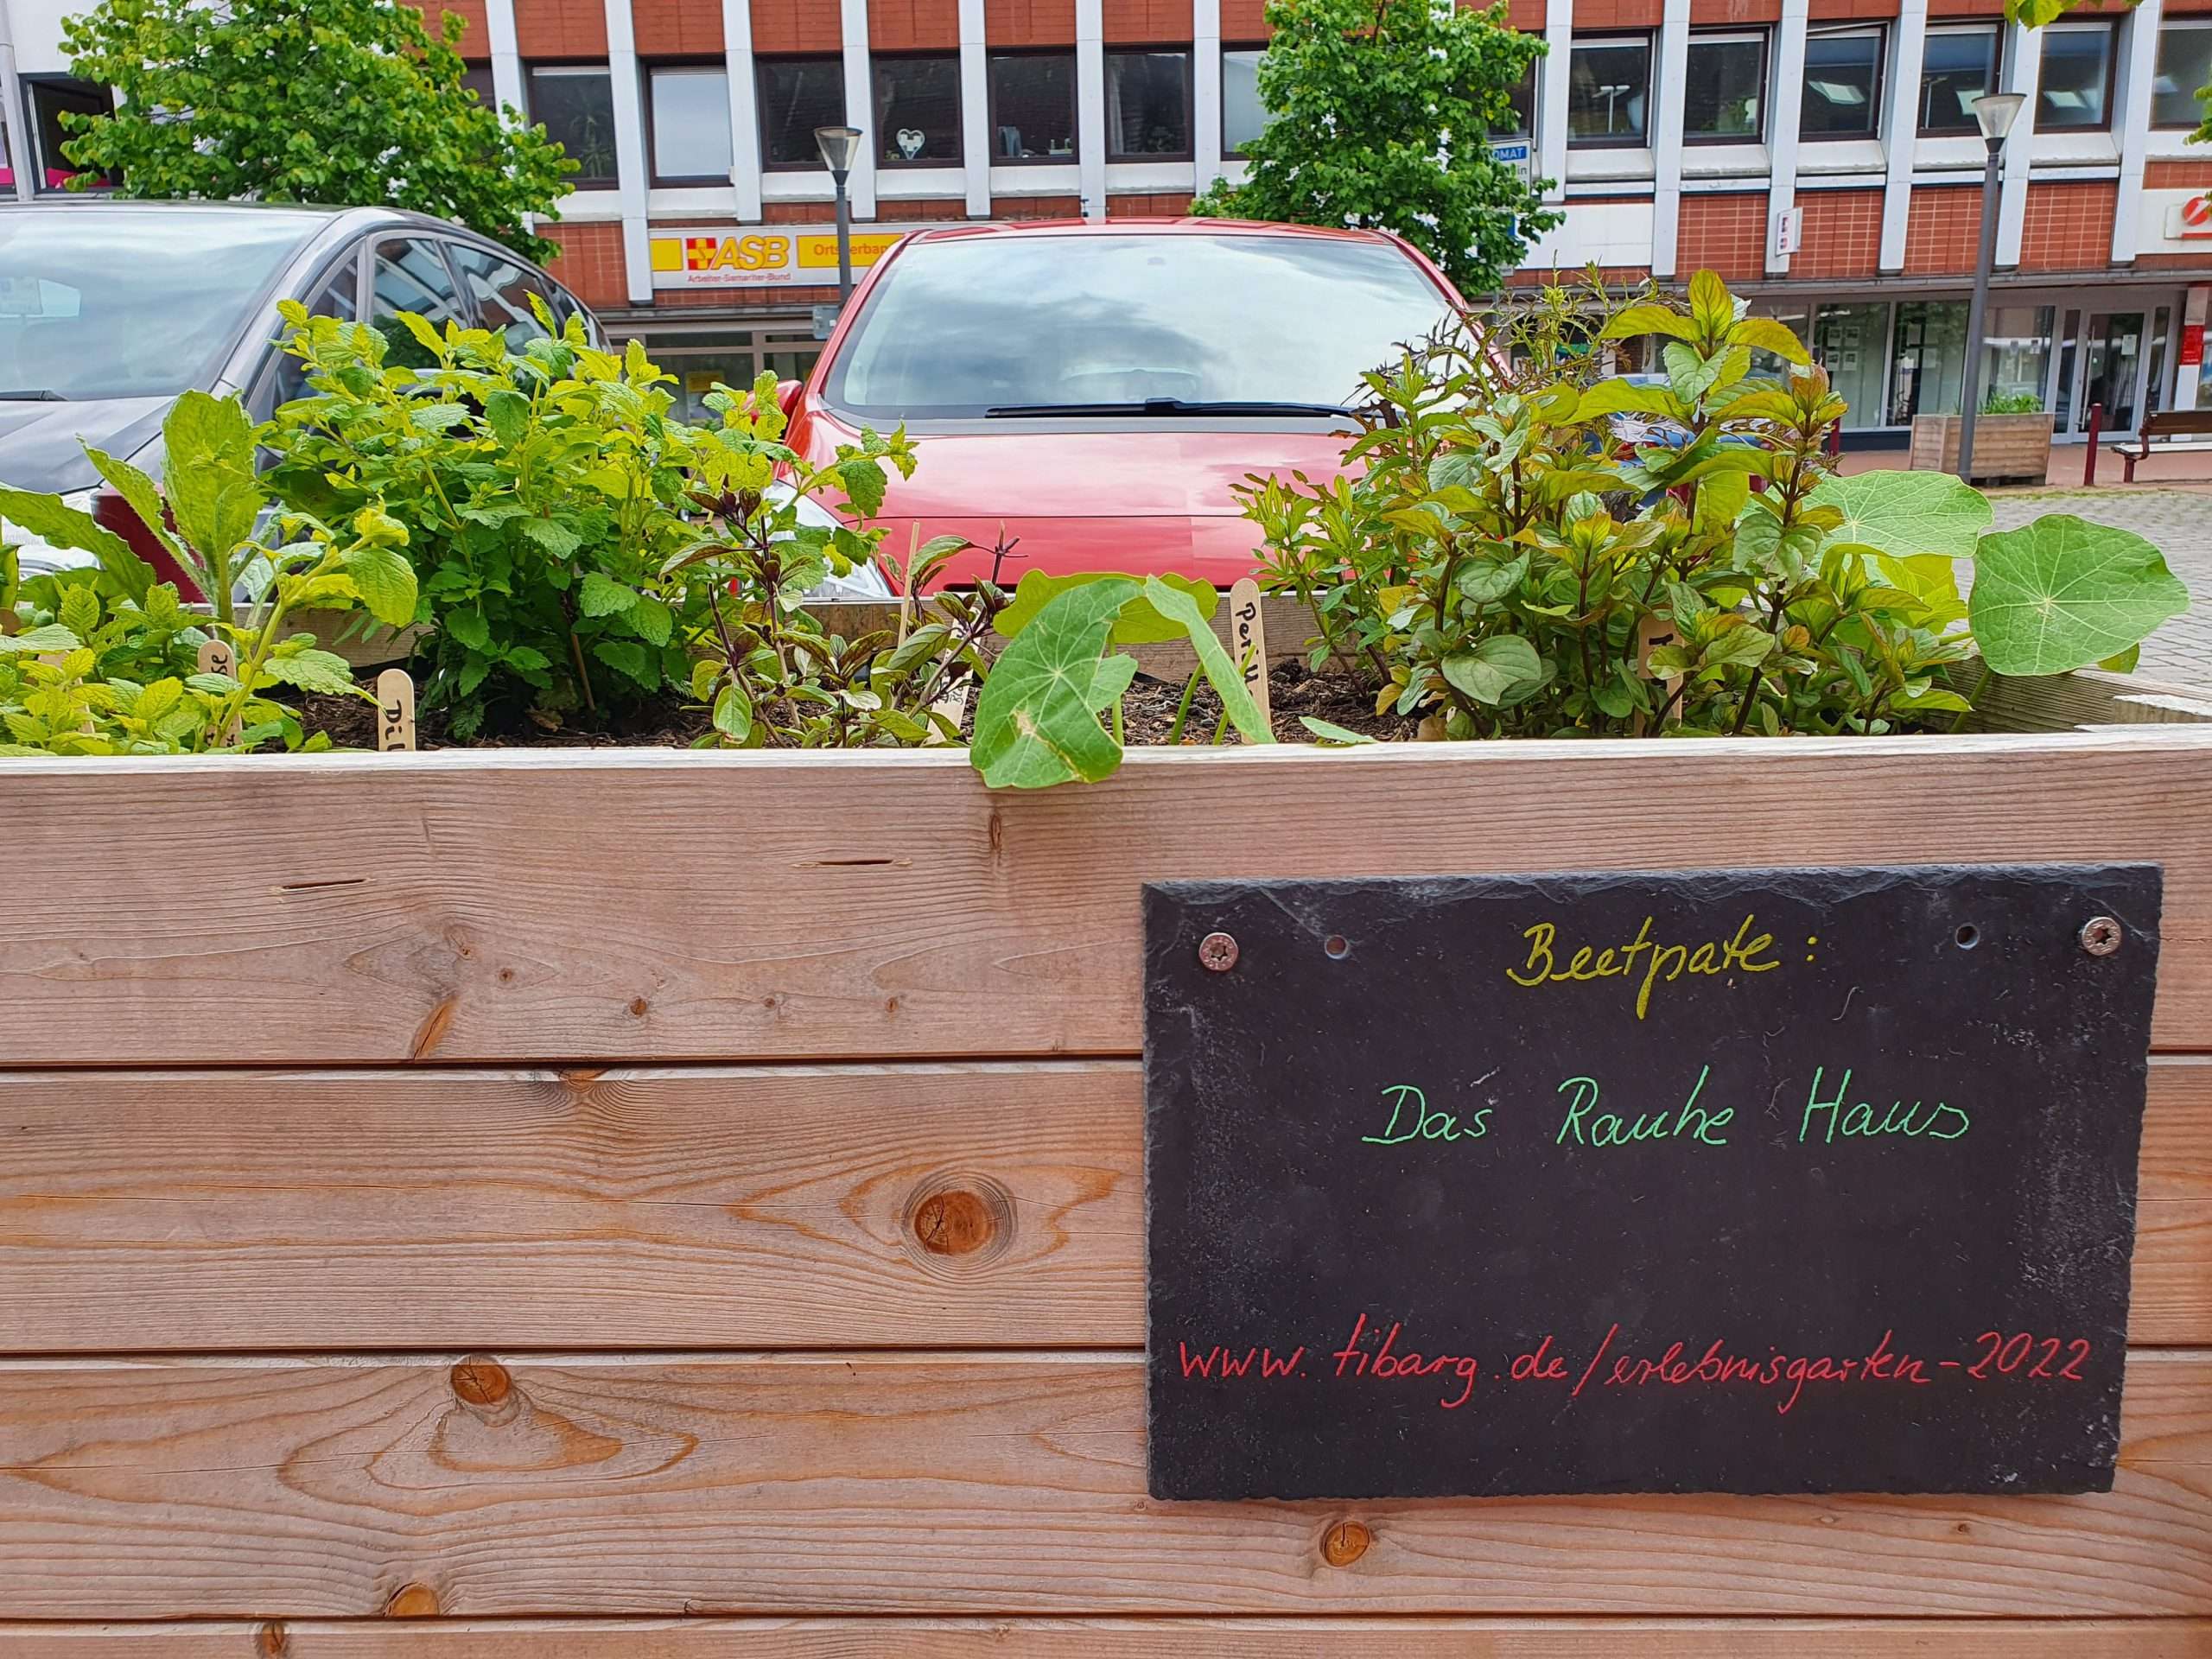 OMAT
ASB
Arbeiter-Samariter-Bund
Beetpate:
Das Rauhe Haus
www.tibarg.de/erlebnisgarten-2022